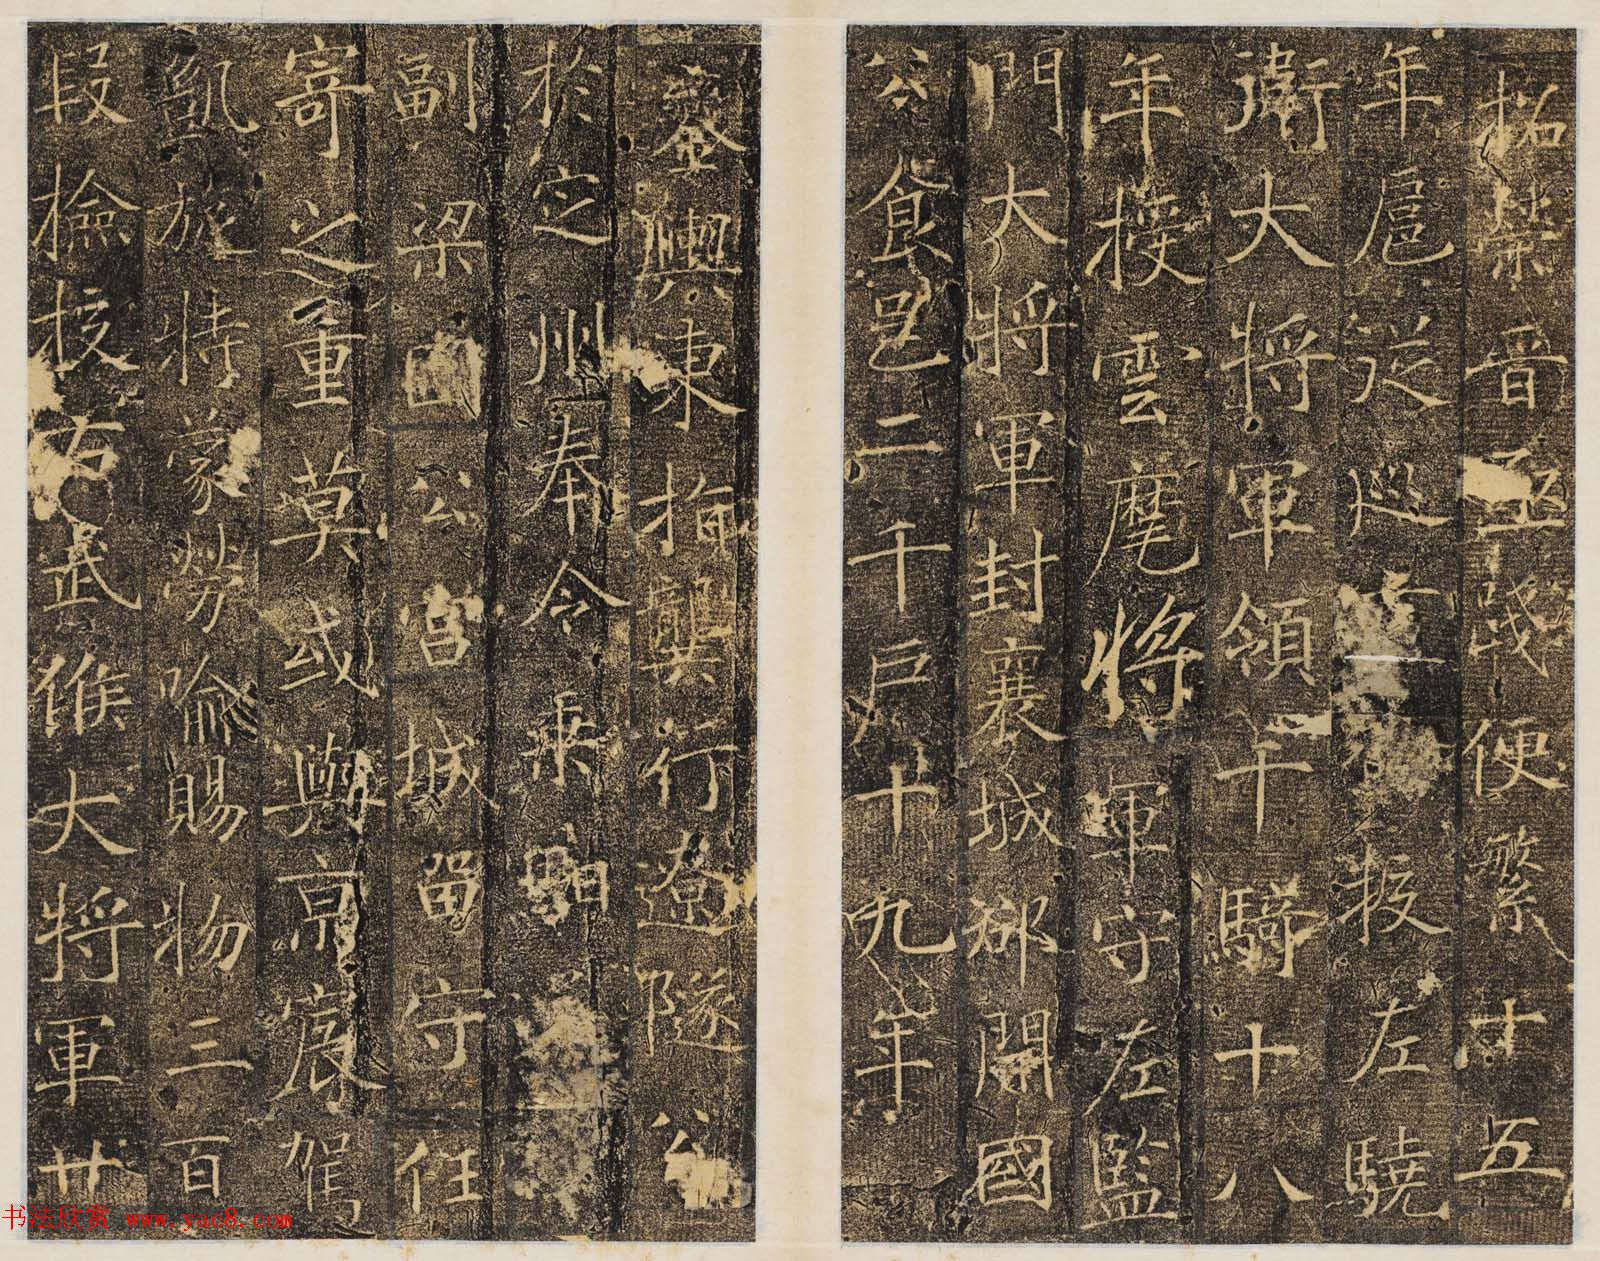 晉便繁十五
年扈從巡授左驍
衛大將軍領騎十八
年授雲麾將軍守左監
門大將軍封襄城郡開國
公食邑二千戶十九年
鑾輿東指龔行遼隧公
於定州奉令乘馹
副梁國公宮城留守任
寄之重莫或與京扆駕
凱旋特蒙勞喻賜物三百
段檢校右武候大將軍廿
书法欣赏 www.yac8.com